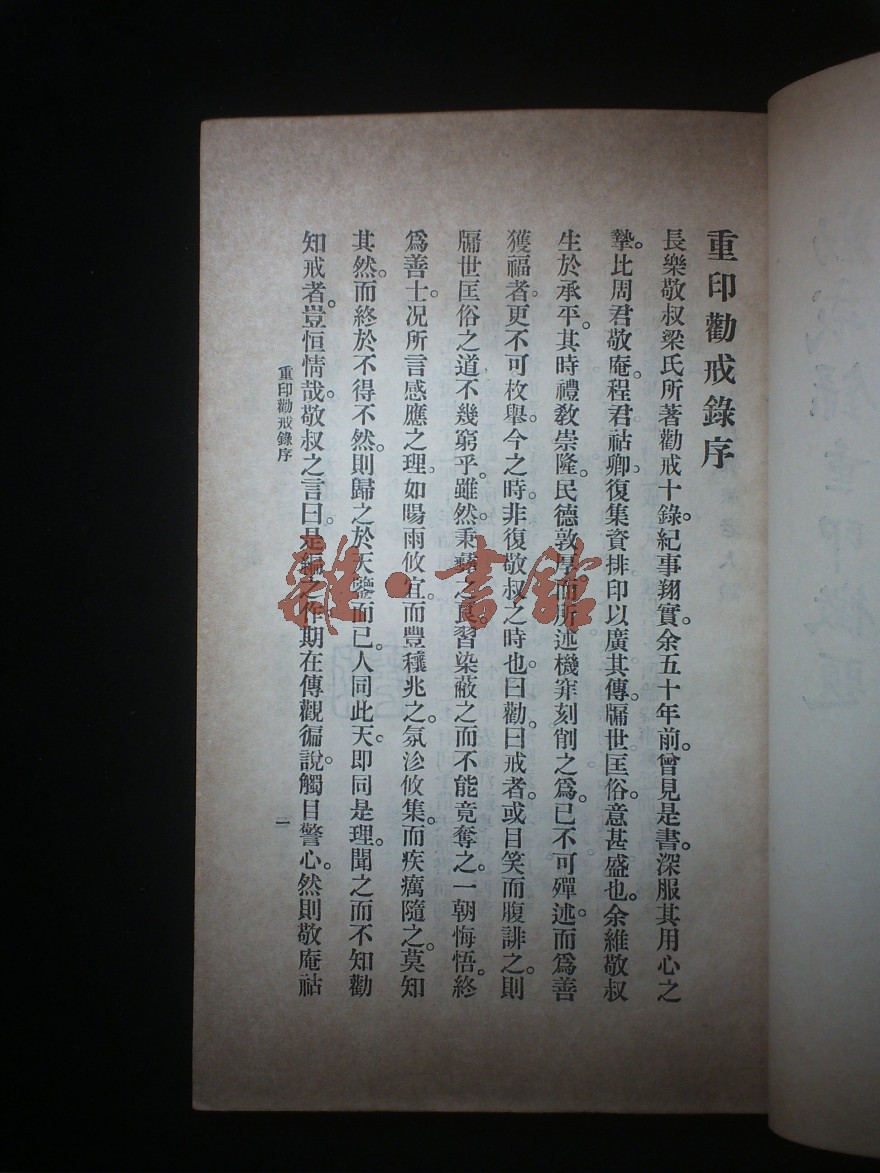 重印勸戒錄序
長樂敬叔梁氏所著勸戒十錄。紀事翔實。余五十年前。曾見是書。深服其用心之
摯。比周君敬庵。程君祜卿。復集資排印以廣其傳。牖世匡俗。意甚盛也。余維敬叔
生於承平。其時禮教崇隆。民德敦厚。而所述機穽刻削之爲。已不可殫述。而爲善
獲福者。更不可枚舉。今之時。非復敬叔之時也。曰勸。曰戒者。或目笑而腹誹之。則
牖世匡俗之道不幾窮乎。雖然。秉彝之良。習染蔽之而不能竟奪之。一朝悔悟。終
爲善士。况所言感應之理。如暘雨攸宜。而豐穰兆之。氛沴攸集。而疾癘隨之。莫知
其然。而終於不得不然。則歸之於天鑒而已。人同此天。即同是理。聞之而不知勸
知戒者。豈恒情哉。敬叔之言曰。是編之作。期在傳觀徧說。觸目警心。然則敬庵祜
重印勸戒錄序
一
雜·書館